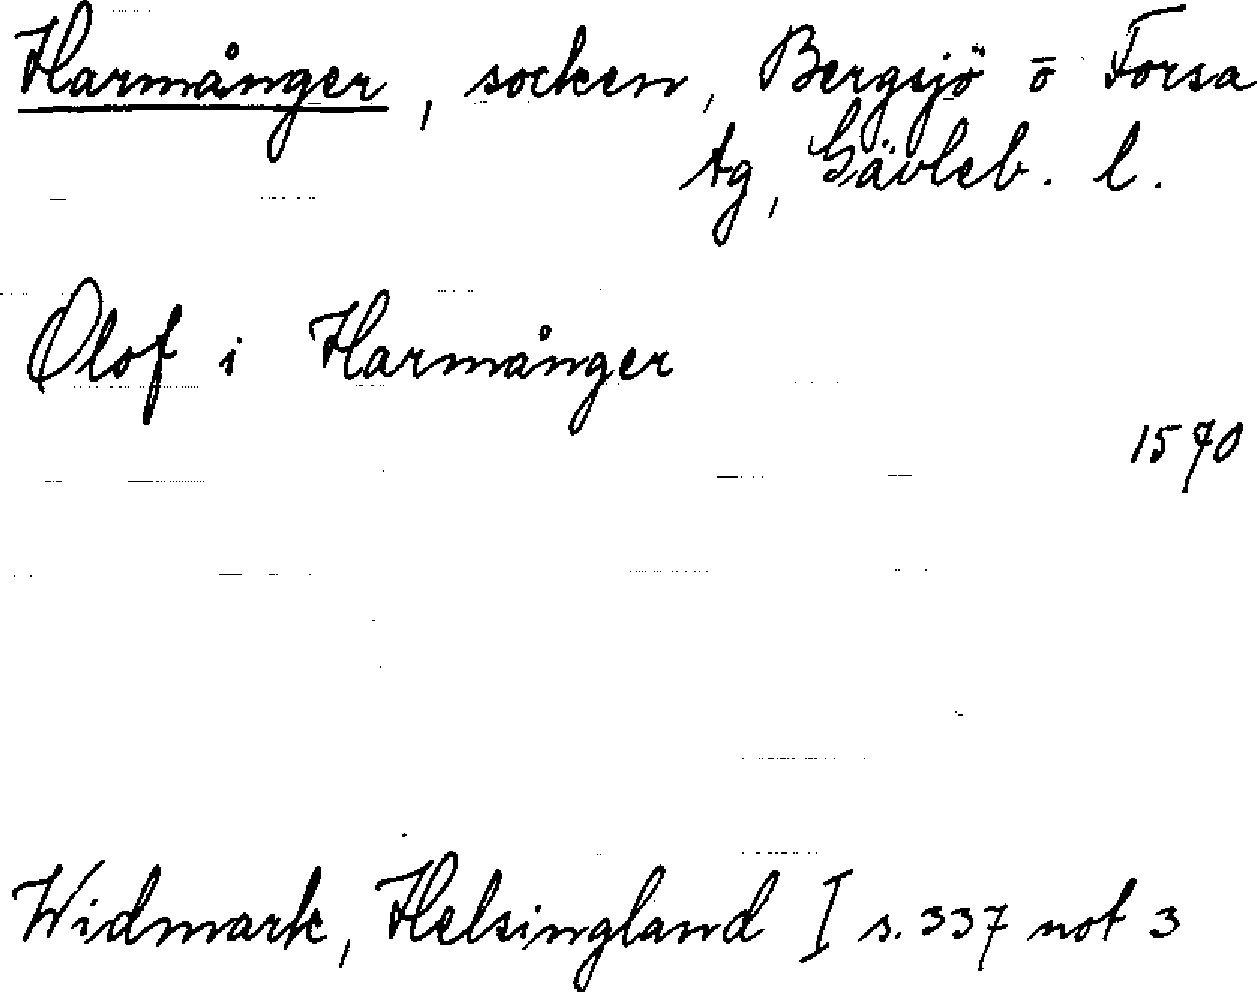 Harmånger, socken, Bergsjö o Forsa
tg, Gävleb. l.
Olof i Harmånger
1570
Widmark, Helsingland I s. 337 not 3